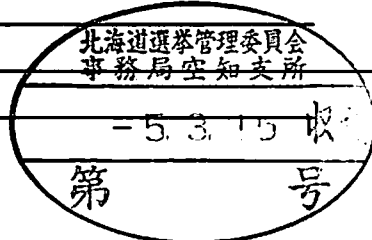 北海道選挙管理委員会
事務局空知支所
-5.3.15 収
第 号